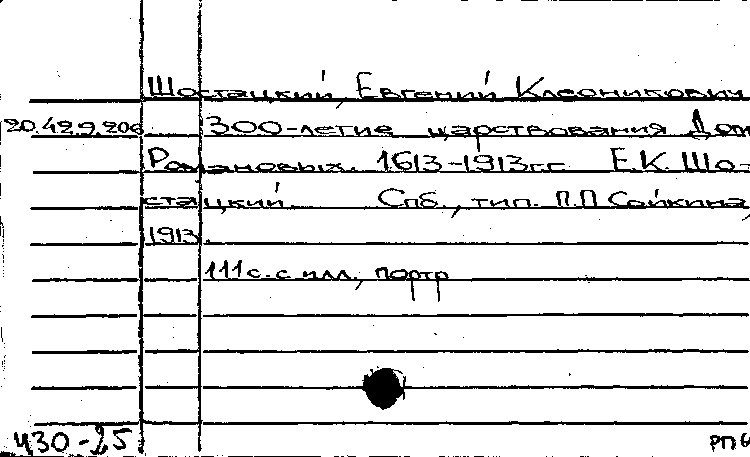 Шостацкий, Евгений Клеоникович
20.42.9.206 300-летие царствования Дом
Романовых. 1613-1913гг. Е.К. Шо-
стацкий. Спб., тип. П.П Сойкина,
1913.
111 с. с илл., портр
430-25 РП6